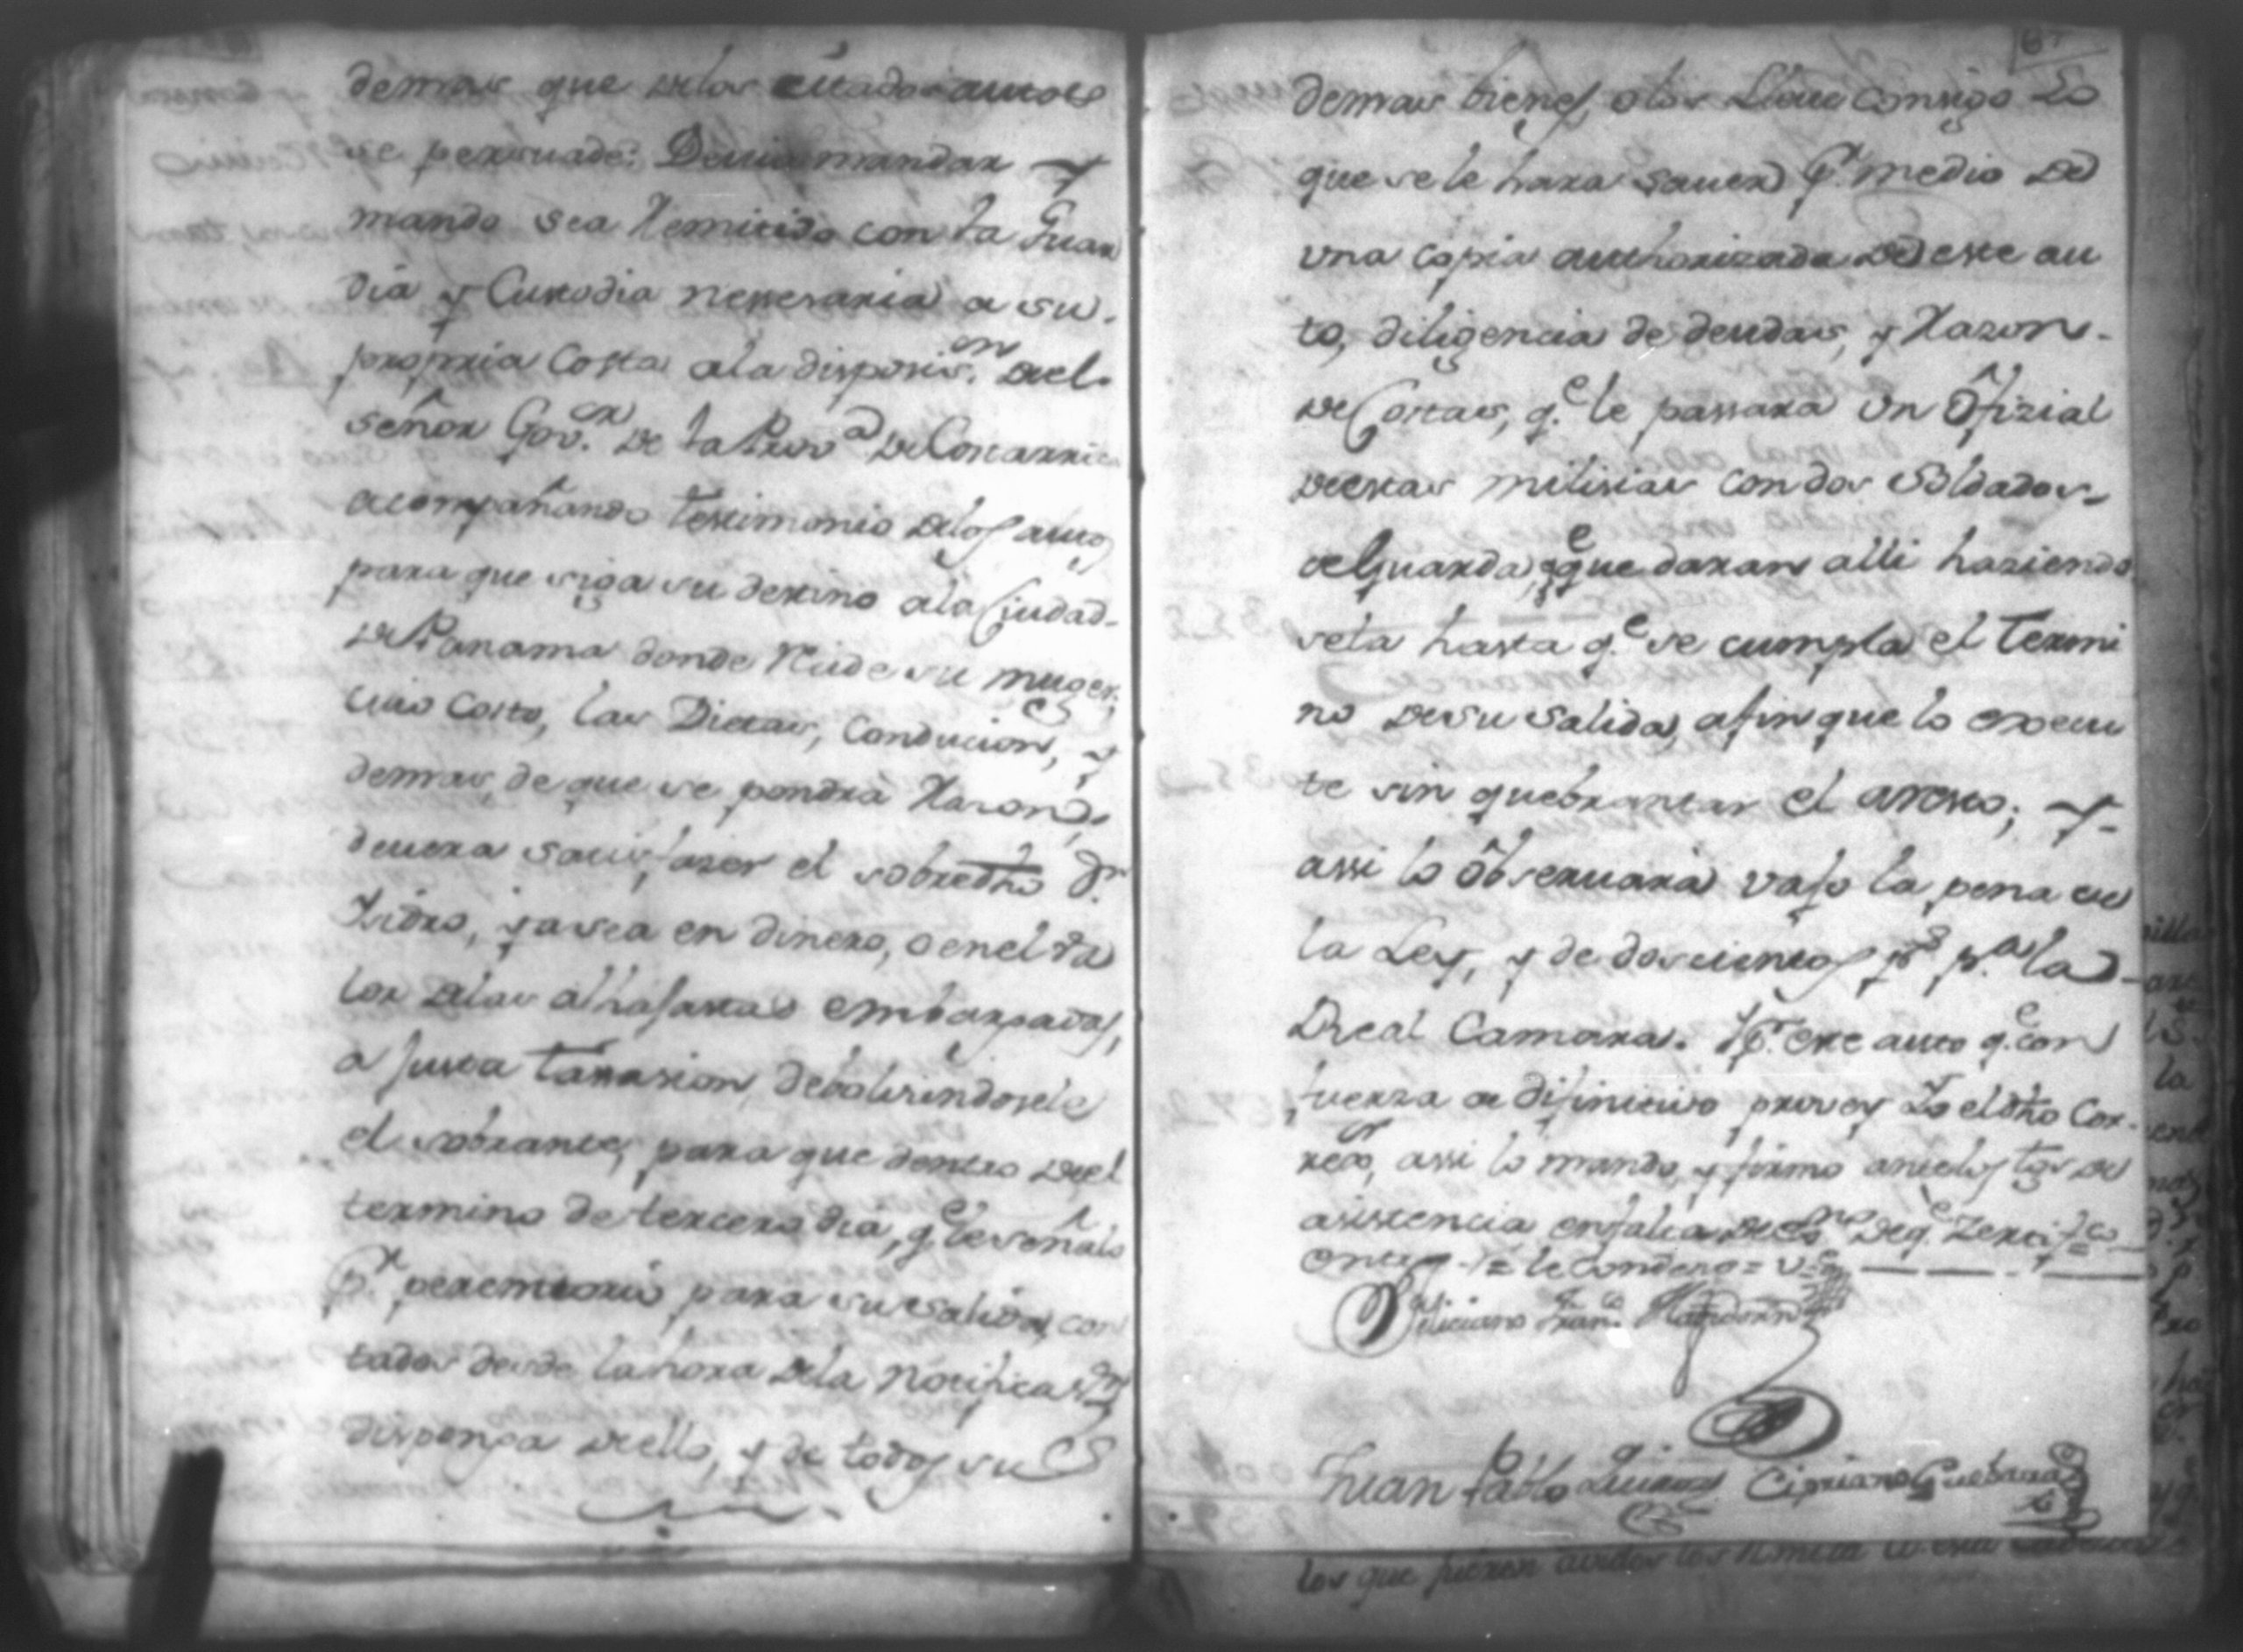 demas que delos citados autos
se persuade: Deuia mandar y
mando sea Remitido con la Guar
dia y Custodia nesesaria a su
propria Costa ala disposis.on del
señor Gov.or de la Prov.a de Costarrica
acompañando testimonio delos autos
para que siga su destino ala Ciudad
de Panama donde Recide su muger;
cuio costo, las Dietas, Conducion, y
demas, de que se pondrá Razon,
deuera satisfazer el sobredho Dn.
Isidro, ya sea en dinero, o en el va
lor delas alhajas embargadas,
a justa tassasion, debolviendosele
el sobrante, para que dentro del
termino de tercero dia, q.e le señalo
p.r peremtorio para su salida, con
tados desde la hora dela notificas.on
disponga dello, y de todos sus
demas bienes, o los Lleue consigo Lo
que se le hara sauer p.r medio de
vna copia authorizada de este au
to, diligencia de deudas, y Razon
de Costas, q.e le passara vn Ofizial
de estas milisias con dos soldados
de guarda, que daran alli haziendo
sela hasta q.e se cumpla el termi
no de su salida, afin que lo execu
te sin quebrantar el aresto; y
assi lo obseruará vajo la pena de
la Ley, y de dosientos ps. p.a la
Real Camara. Y p.r este auto q.e con
fuerza de difinitiuo provey Yo el dho Cor
rex.or, assi lo mando, y firmo antelos tgos de
asistencia en falta de Es.no de q.e Zertifico
Feliciano Fran.co
Juan Pablo Cipriano Guebara
los que fueron